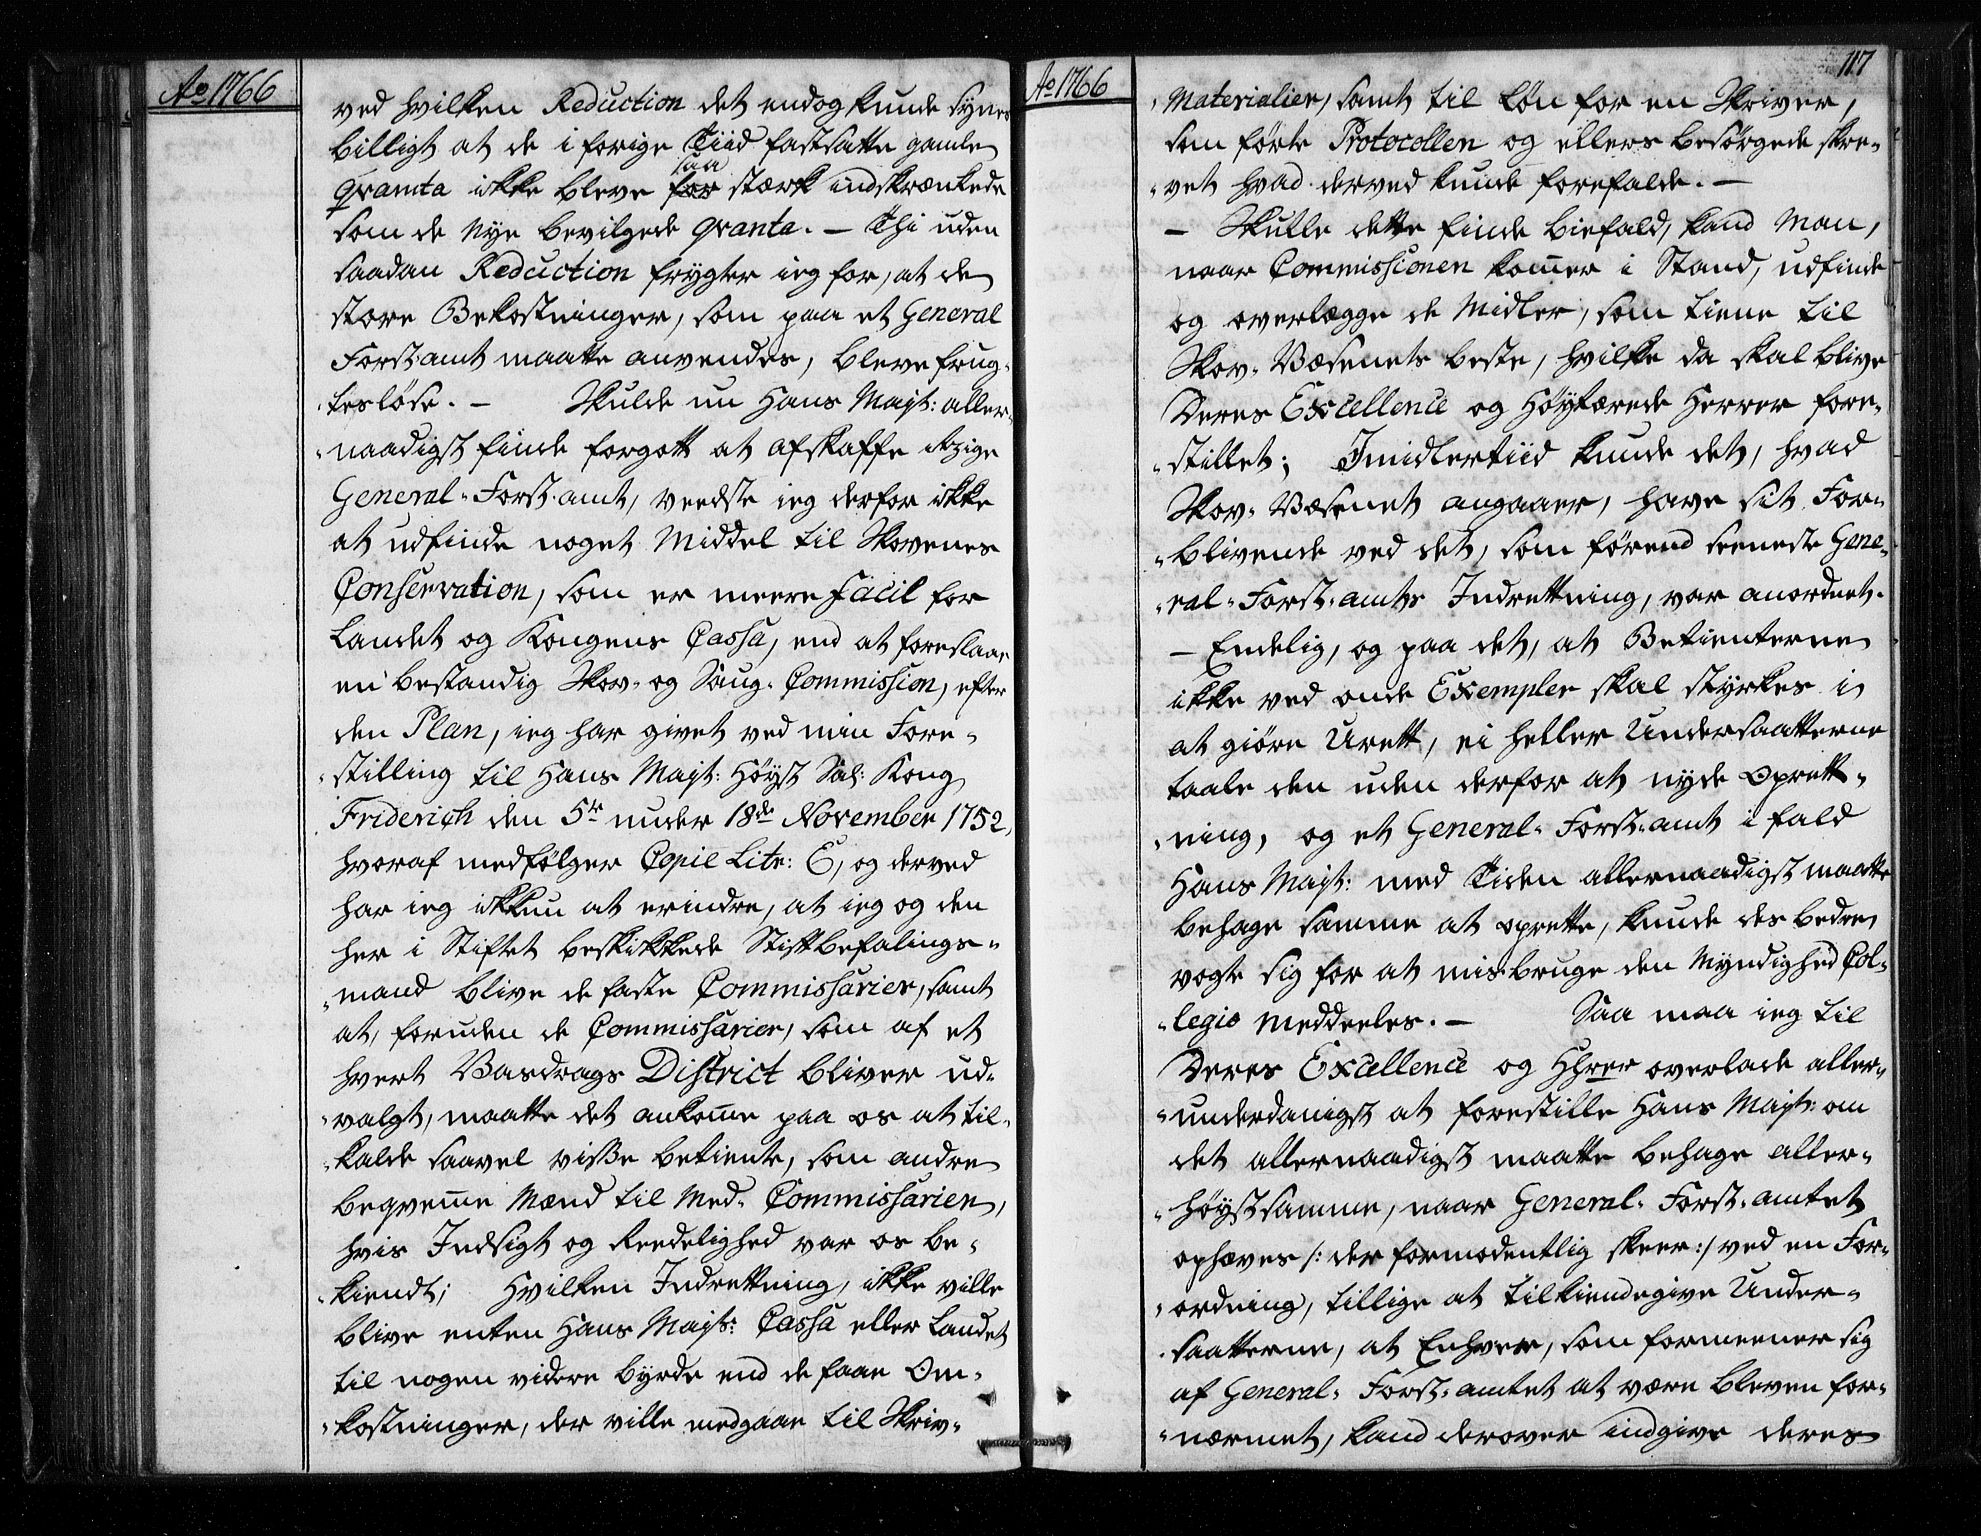 Ao 1766
ved hvilken Reduction det endog kunde synes
billigt at de i forige Tiid fastsatte gamle
Qvanta ikke bleve for saa stærk indskrænkede
som de Nye bevilgede Qvanta. – Thi uden
saadan Reduction frygter ieg for, at de
store Bekostninger, som paa et General
Forst-amt maatte anvendes, bleve frug-
tesløse. – Skulde nu Hans Mayt: aller-
naadigst finde forgott at afskaffe itzige
General-Forst-amt, veedste ieg derfor ikke
at udfinde noget Middel til Skovenes
Conservation, som er meere facil for
Landet og Kongens Cassa, end at foreslaae
en bestandig Skov- og Saug-Commission, efter
den Plan, ieg har givet ved min Fore-
stilling til Hans Mayt: Høyst Sal: Kong
Friderich den 5te under 18de November 1752,
hvoraf medfølger Copie Litr: E, og derved
har ieg ikkun at erindre, at ieg og den
her i Stiftet beskikkede Stiftbefalings-
mand blive de faste Commissarier, samt
at, foruden de Commissarier, som af et
hvert Vasdrags District bliver ud-
valgt, maatte det ankom̄e paa os at til-
kalde saavel visse betiente, som andre
beqvem̄e Mænd til Med-Commissarier,
hvis Indsigt og Reedelighed var os be-
kiendt; Hvilken Indrettning, ikke ville
blive enten Hans Mayts: Cassa eller Landet
til nogen videre byrde end de faae Om-
kostninger, der ville medgaae til Skriv-
Ao 1766
117
Materialier, samt til Løn for en Skriver,
som førte Protocollen og ellers besørgede skre-
vet hvad derved kunde forefalde. –
– Skulle dette finde biefald, kand Man,
naar Commissionen kom̄er i Stand, udfinde
og overlægge de Midler, som tiene til
Skov-Væsenets beste, hvilke da skal blive
Deres Excellence og Høytærede Herrer fore-
stillet; Imidlertiid kunde det, hvad
Skov-Væsenet angaaer, have sit For-
blivende ved det, som førend seeneste Gene-
ral-Forst-amts Indrettning, var anordnet.
– Endelig, og paa det, at Betienterne
ikke ved onde Exempler skal styrkes i
at giøre Urett, ei heller Undersaatterne
taale den uden derfor at nyde Oprett-
ning, og et General-Forst-amt i fald
Hans Mayt: med Tiden allernaadigst maatte
behage samme at oprette, kunde des bedre
vogte sig for at misbruge den Myndighed Col-
legio meddeeles. – Saa maa ieg til
Deres Excellence og Hhrer overlade aller-
underdanigst at forestille Hans Mayt: om
det allernaadigst maatte behage aller-
høystsamme, naar General-Forst-amtet
ophæves /: der formodentlig skeer :/ ved en For-
ordning, tillige at tilkiendegive Under-
saatterne, at Enhver, som formeener sig
af General-Forst-amtet at være bleven for-
nærmet, kand derover indgive deres